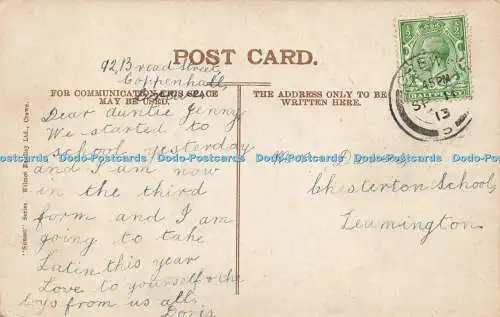 92 Broad Street
Coppenhall
POST CARD.
FOR COMMUNICATION THIS SPACE
MAY BE USED.
THE ADDRESS ONLY TO BE
WRITTEN HERE.
Dear auntie Jenny
We started to
school yesterday
and I am now
in the third
form and I am
going to take
Latin this year
Love to yourself & the
boys from us all.
Doris
Chesterton School
Leamington
CREWE
45 PM
SP
13
"Series. Wilmot Ltd., Crewe.
Dodo-Postcards Dodo-Postcards Dodo-Postcards Dodo-Postcards Dodo-Postcards Dodo-Postcards